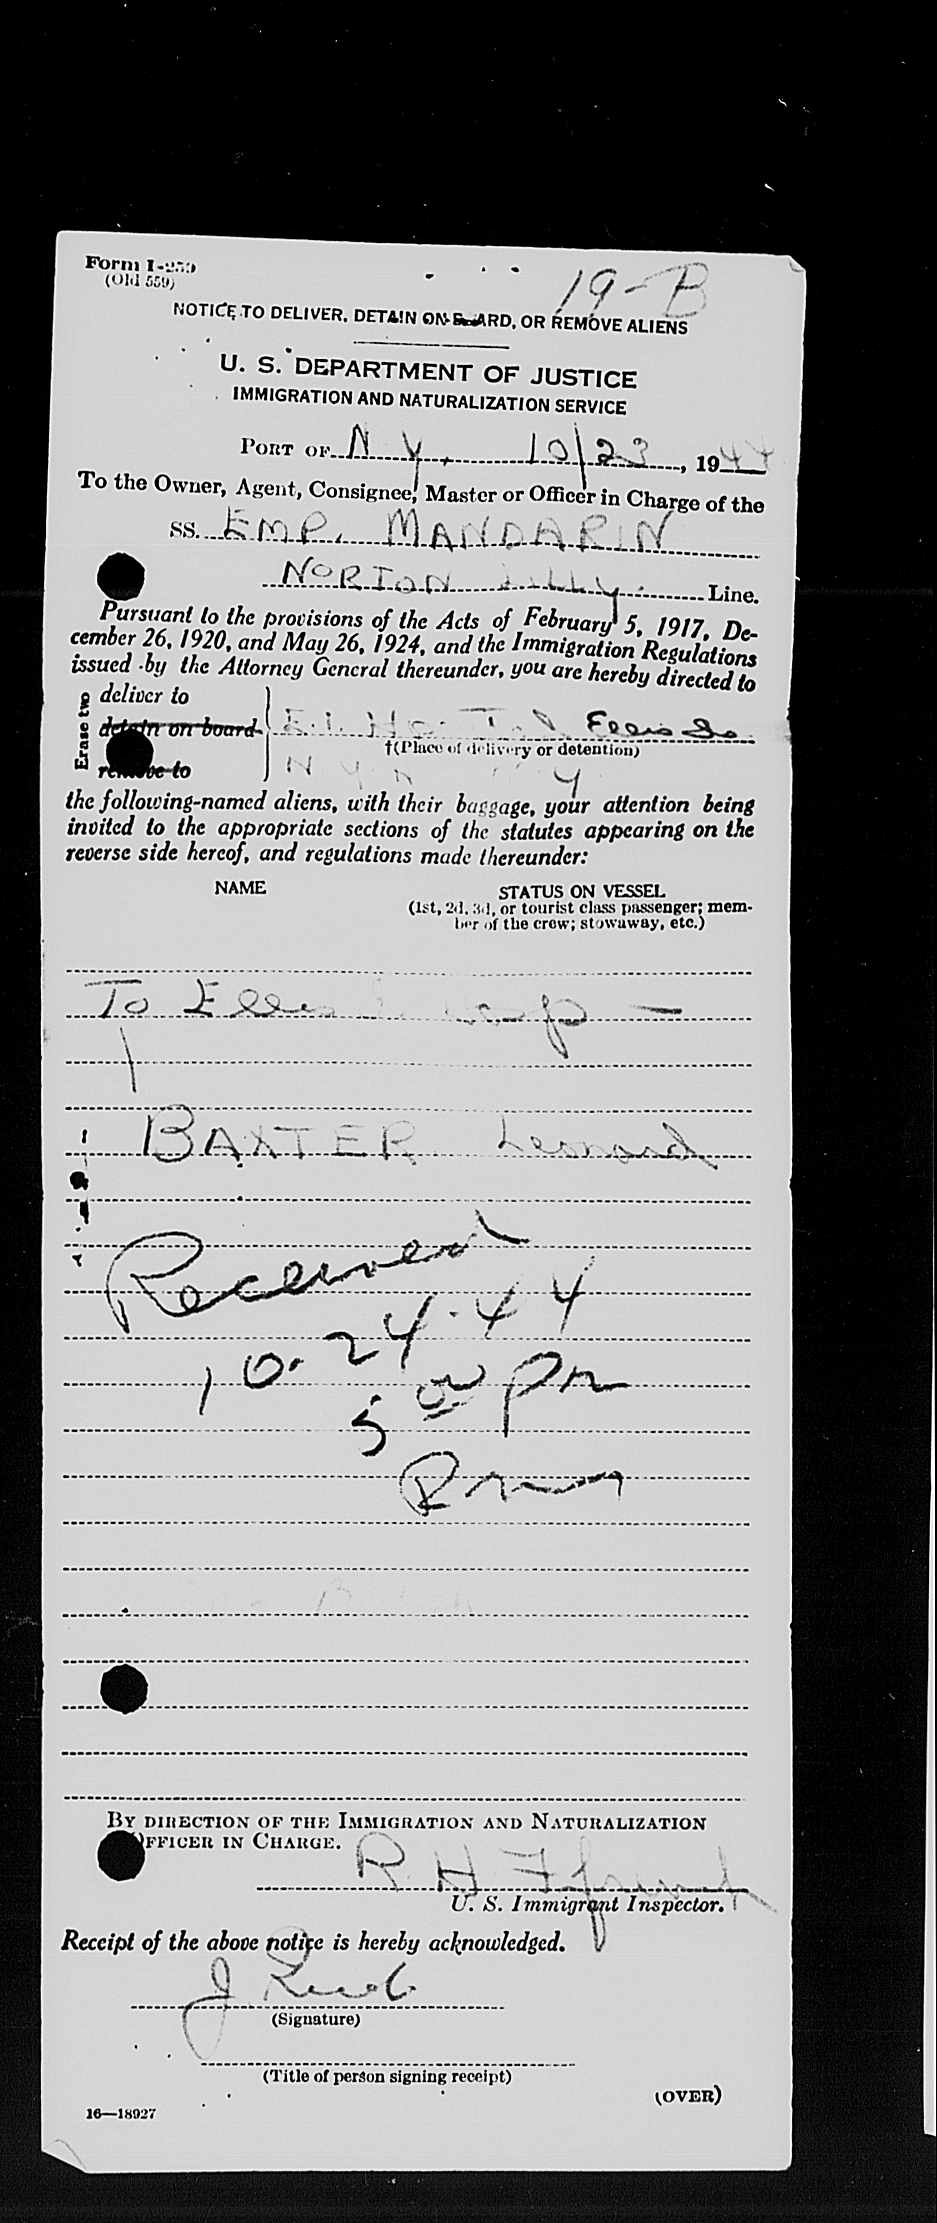 Form I-259
(Old 559)
19-B
NOTICE TO DELIVER, DETAIN ON BOARD, OR REMOVE ALIENS
U. S. DEPARTMENT OF JUSTICE
IMMIGRATION AND NATURALIZATION SERVICE
PORT OF N Y, 10/23, 1944
To the Owner, Agent, Consignee, Master or Officer in Charge of the
SS. EMP. MANDARIN
NORTON LILLY Line.
Pursuant to the provisions of the Acts of February 5, 1917, De-
cember 26, 1920, and May 26, 1924, and the Immigration Regulations
issued by the Attorney General thereunder, you are hereby directed to
Erase two
deliver to
detain on board E.I. Ellis Is.
†(Place of delivery or detention)
remove to
the following-named aliens, with their baggage, your attention being
invited to the appropriate sections of the statutes appearing on the
reverse side hereof, and regulations made thereunder:
NAME STATUS ON VESSEL
(1st, 2d, 3d, or tourist class passenger; mem-
ber of the crew; stowaway, etc.)
To Ellis
BAXTER Leonard
Received
10-24-44
5 00 pm
BY DIRECTION OF THE IMMIGRATION AND NATURALIZATION
OFFICER IN CHARGE.
R. H.
U. S. Immigrant Inspector.
Receipt of the above notice is hereby acknowledged.
J
(Signature)
(Title of person signing receipt)
(OVER)
16—18927